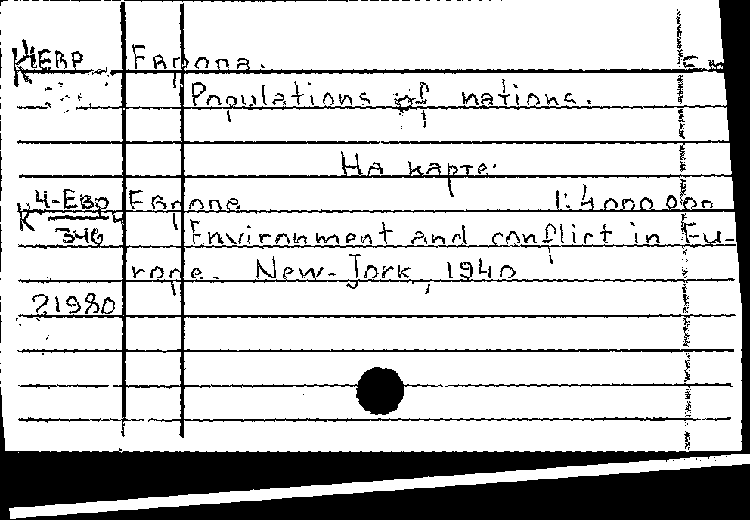 К ЧЕВР Европа.
Populations of nations.
На карте:
К 4-Евр Европа 1:4000000
346 Environment and conflict in Eu-
rope. New-Jork, 1940
21980